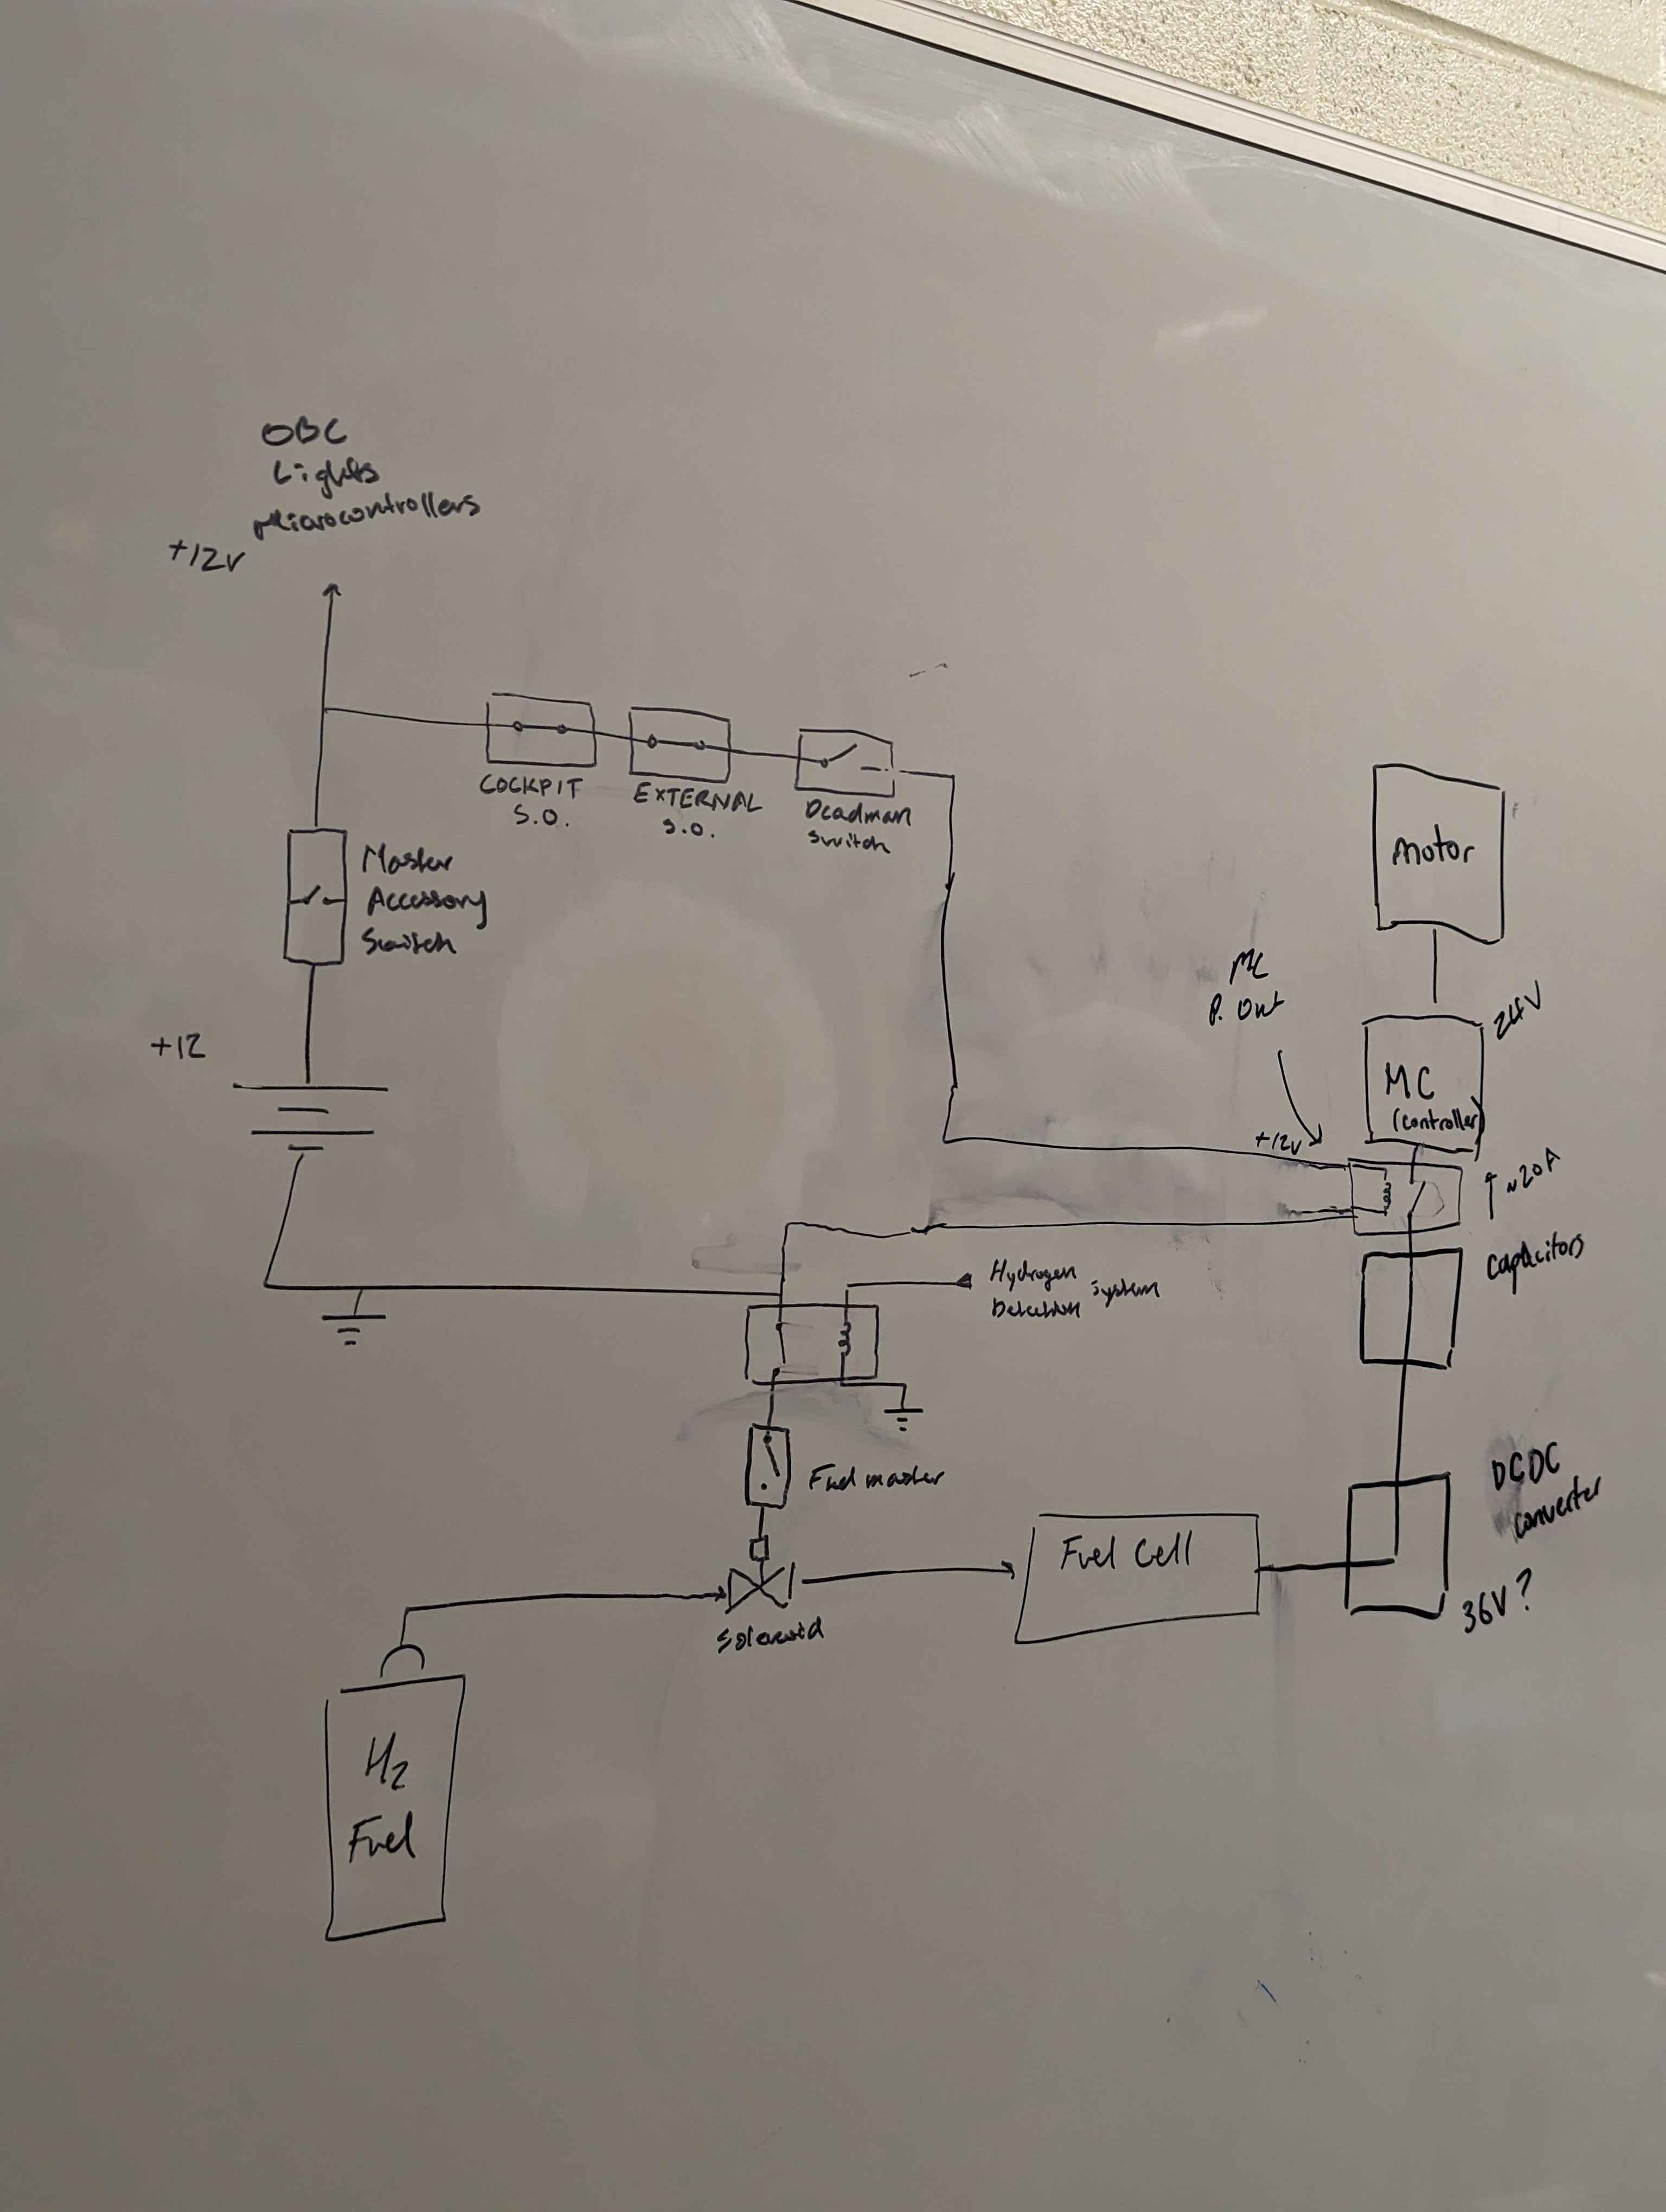 OBC
Lights
Microcontrollers
+12V
COCKPIT
S.O.
EXTERNAL
S.O.
Deadman
Switch
Master
Accessory
Switch
+12
Motor
MC
P. Out
24V
MC
(controller)
+12V
~20A
Capacitors
Hydrogen
Detection
System
Fuel master
Solenoid
Fuel Cell
DCDC
converter
36V?
H2
Fuel